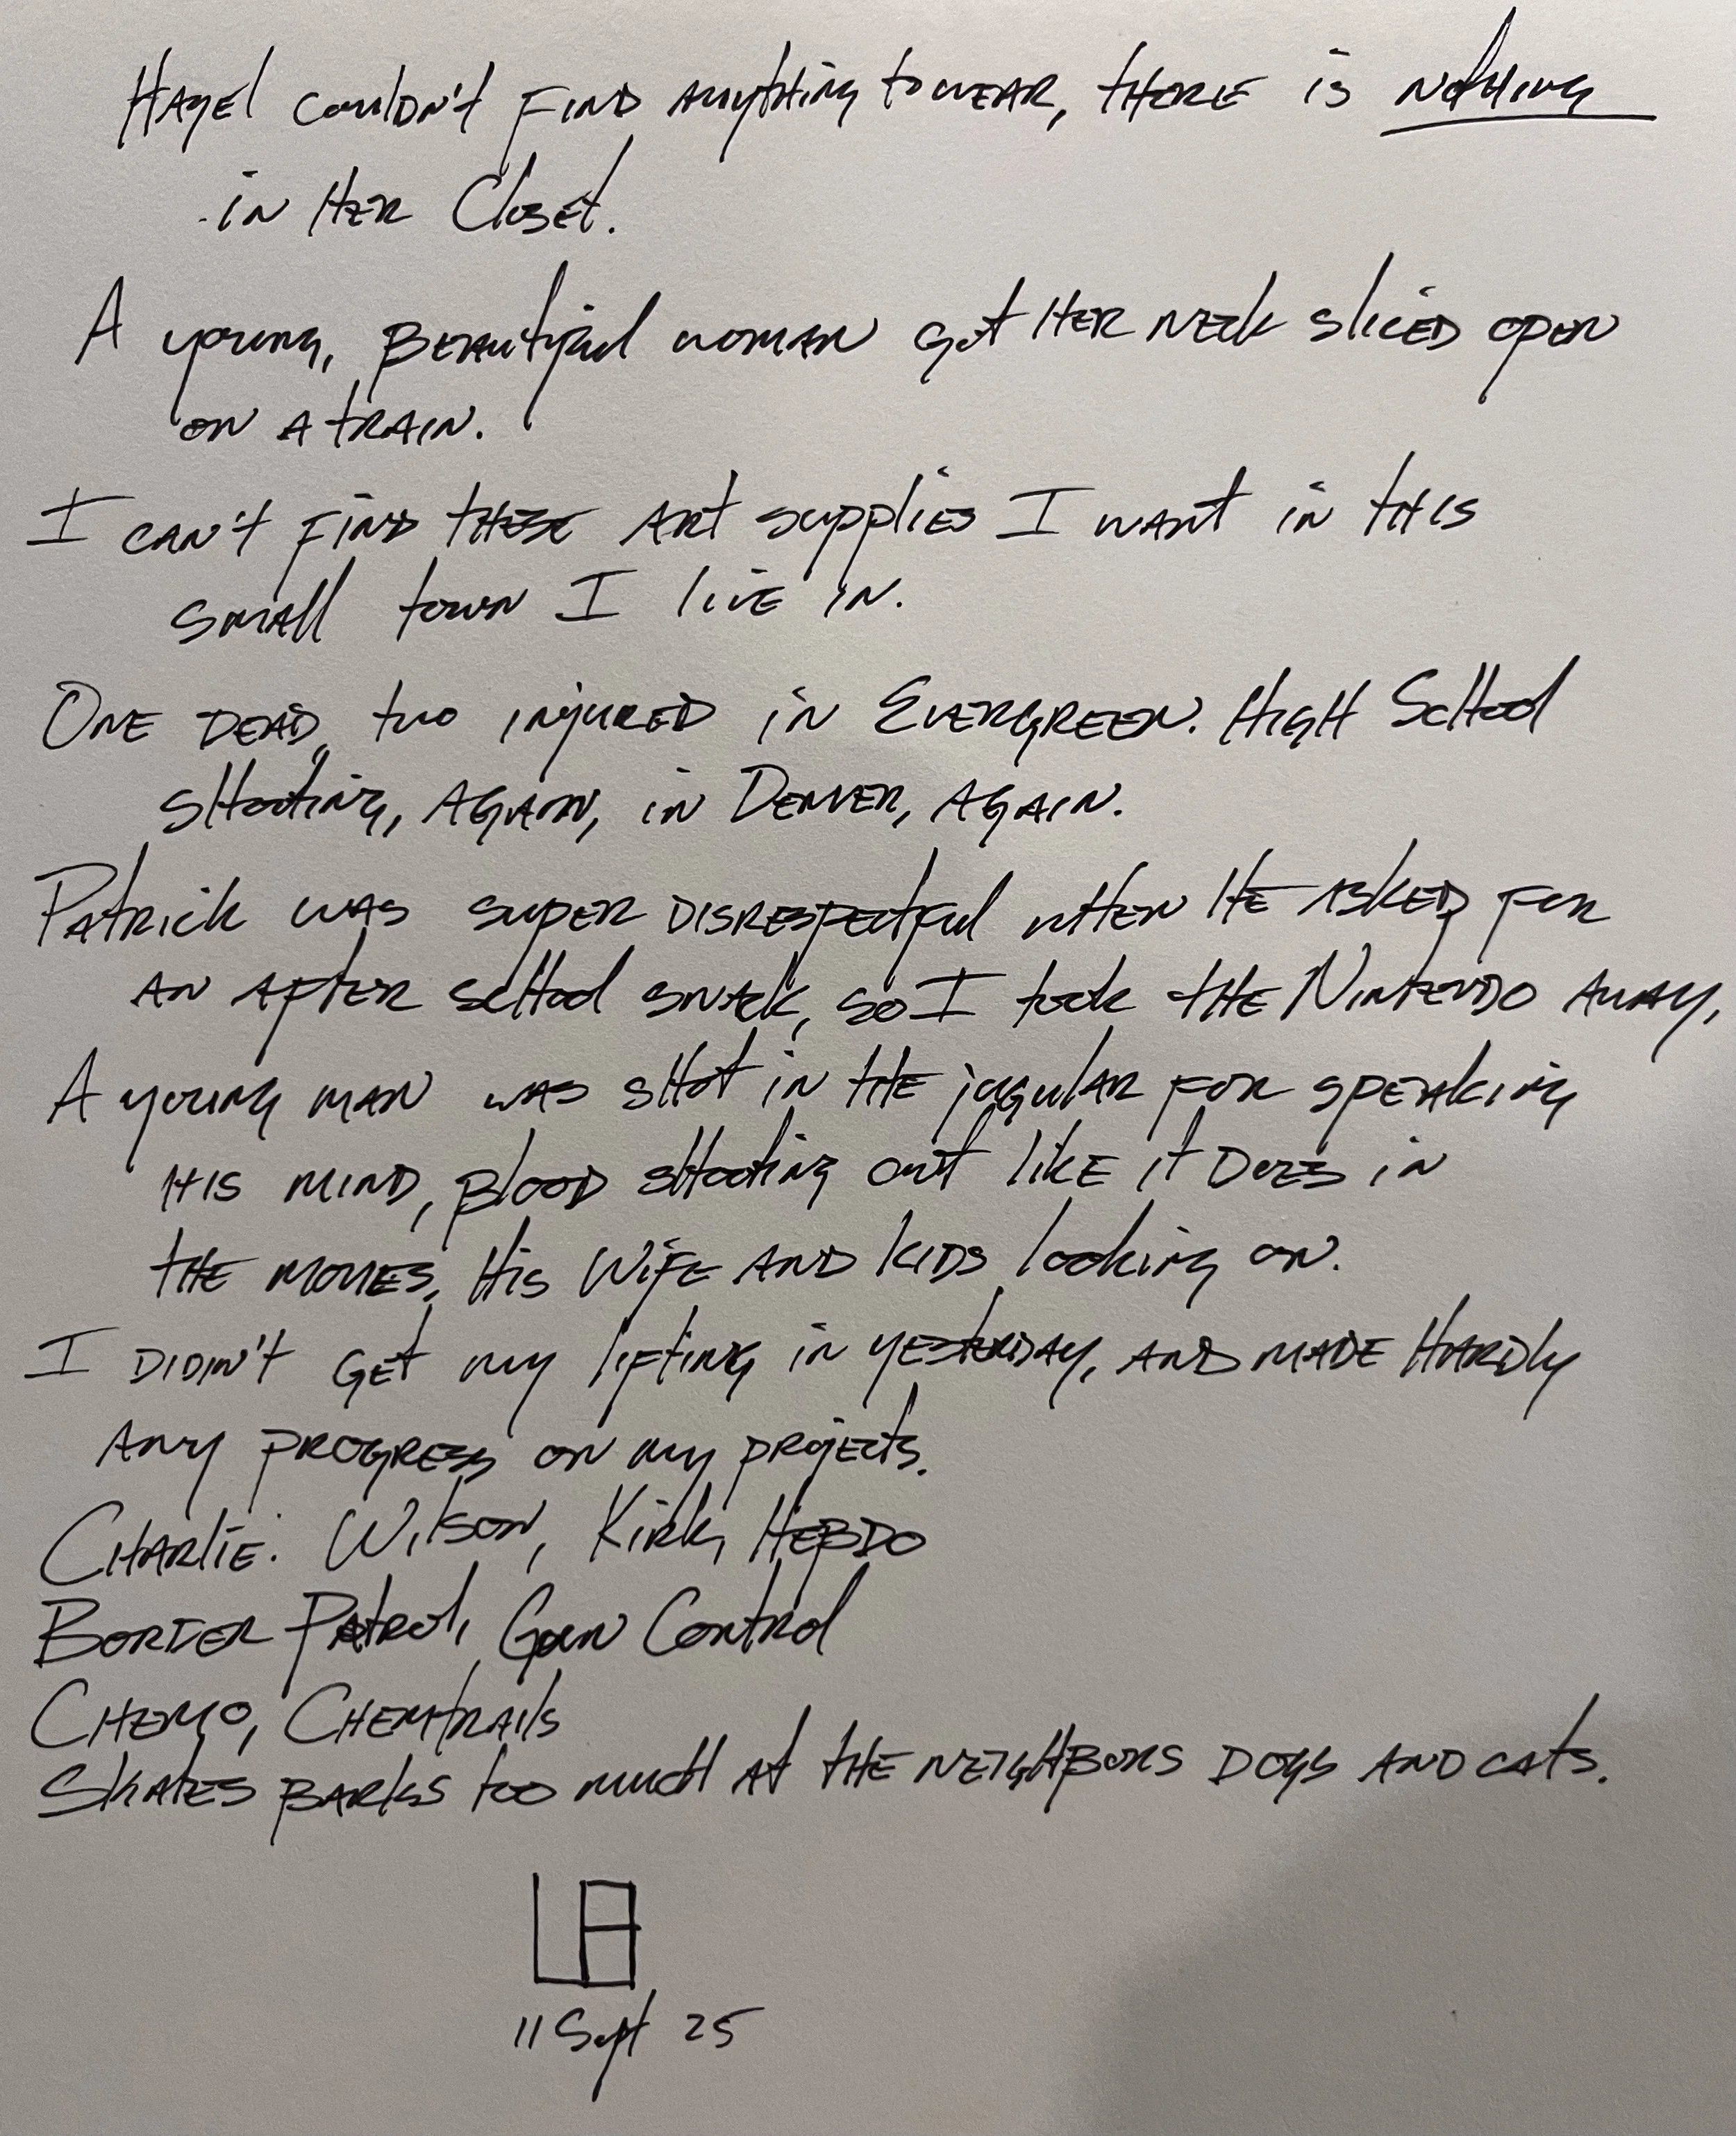 Hazel couldn't find anything to wear, there is nothing
in her closet.
A young, beautiful woman got her neck sliced open
on a train.
I can't find these art supplies I want in this
small town I live in.
One dead, two injured in Evergreen. High School
shooting, again, in Denver, again.
Patrick was super disrespectful when he asked for
an after school snack, so I took the Nintendo away.
A young man was shot in the jugular for speaking
his mind, blood shooting out like it does in
the movies. His wife and kids looking on.
I didn't get my lifting in yesterday, and made hardly
any progress on my projects.
Charlie: Wilson, Kirk, Hebdo
Border Patrol, Gun Control
Chemo, Chemtrails
Skates barks too much at the neighbors dogs and cats.
LB
11 Sept 25